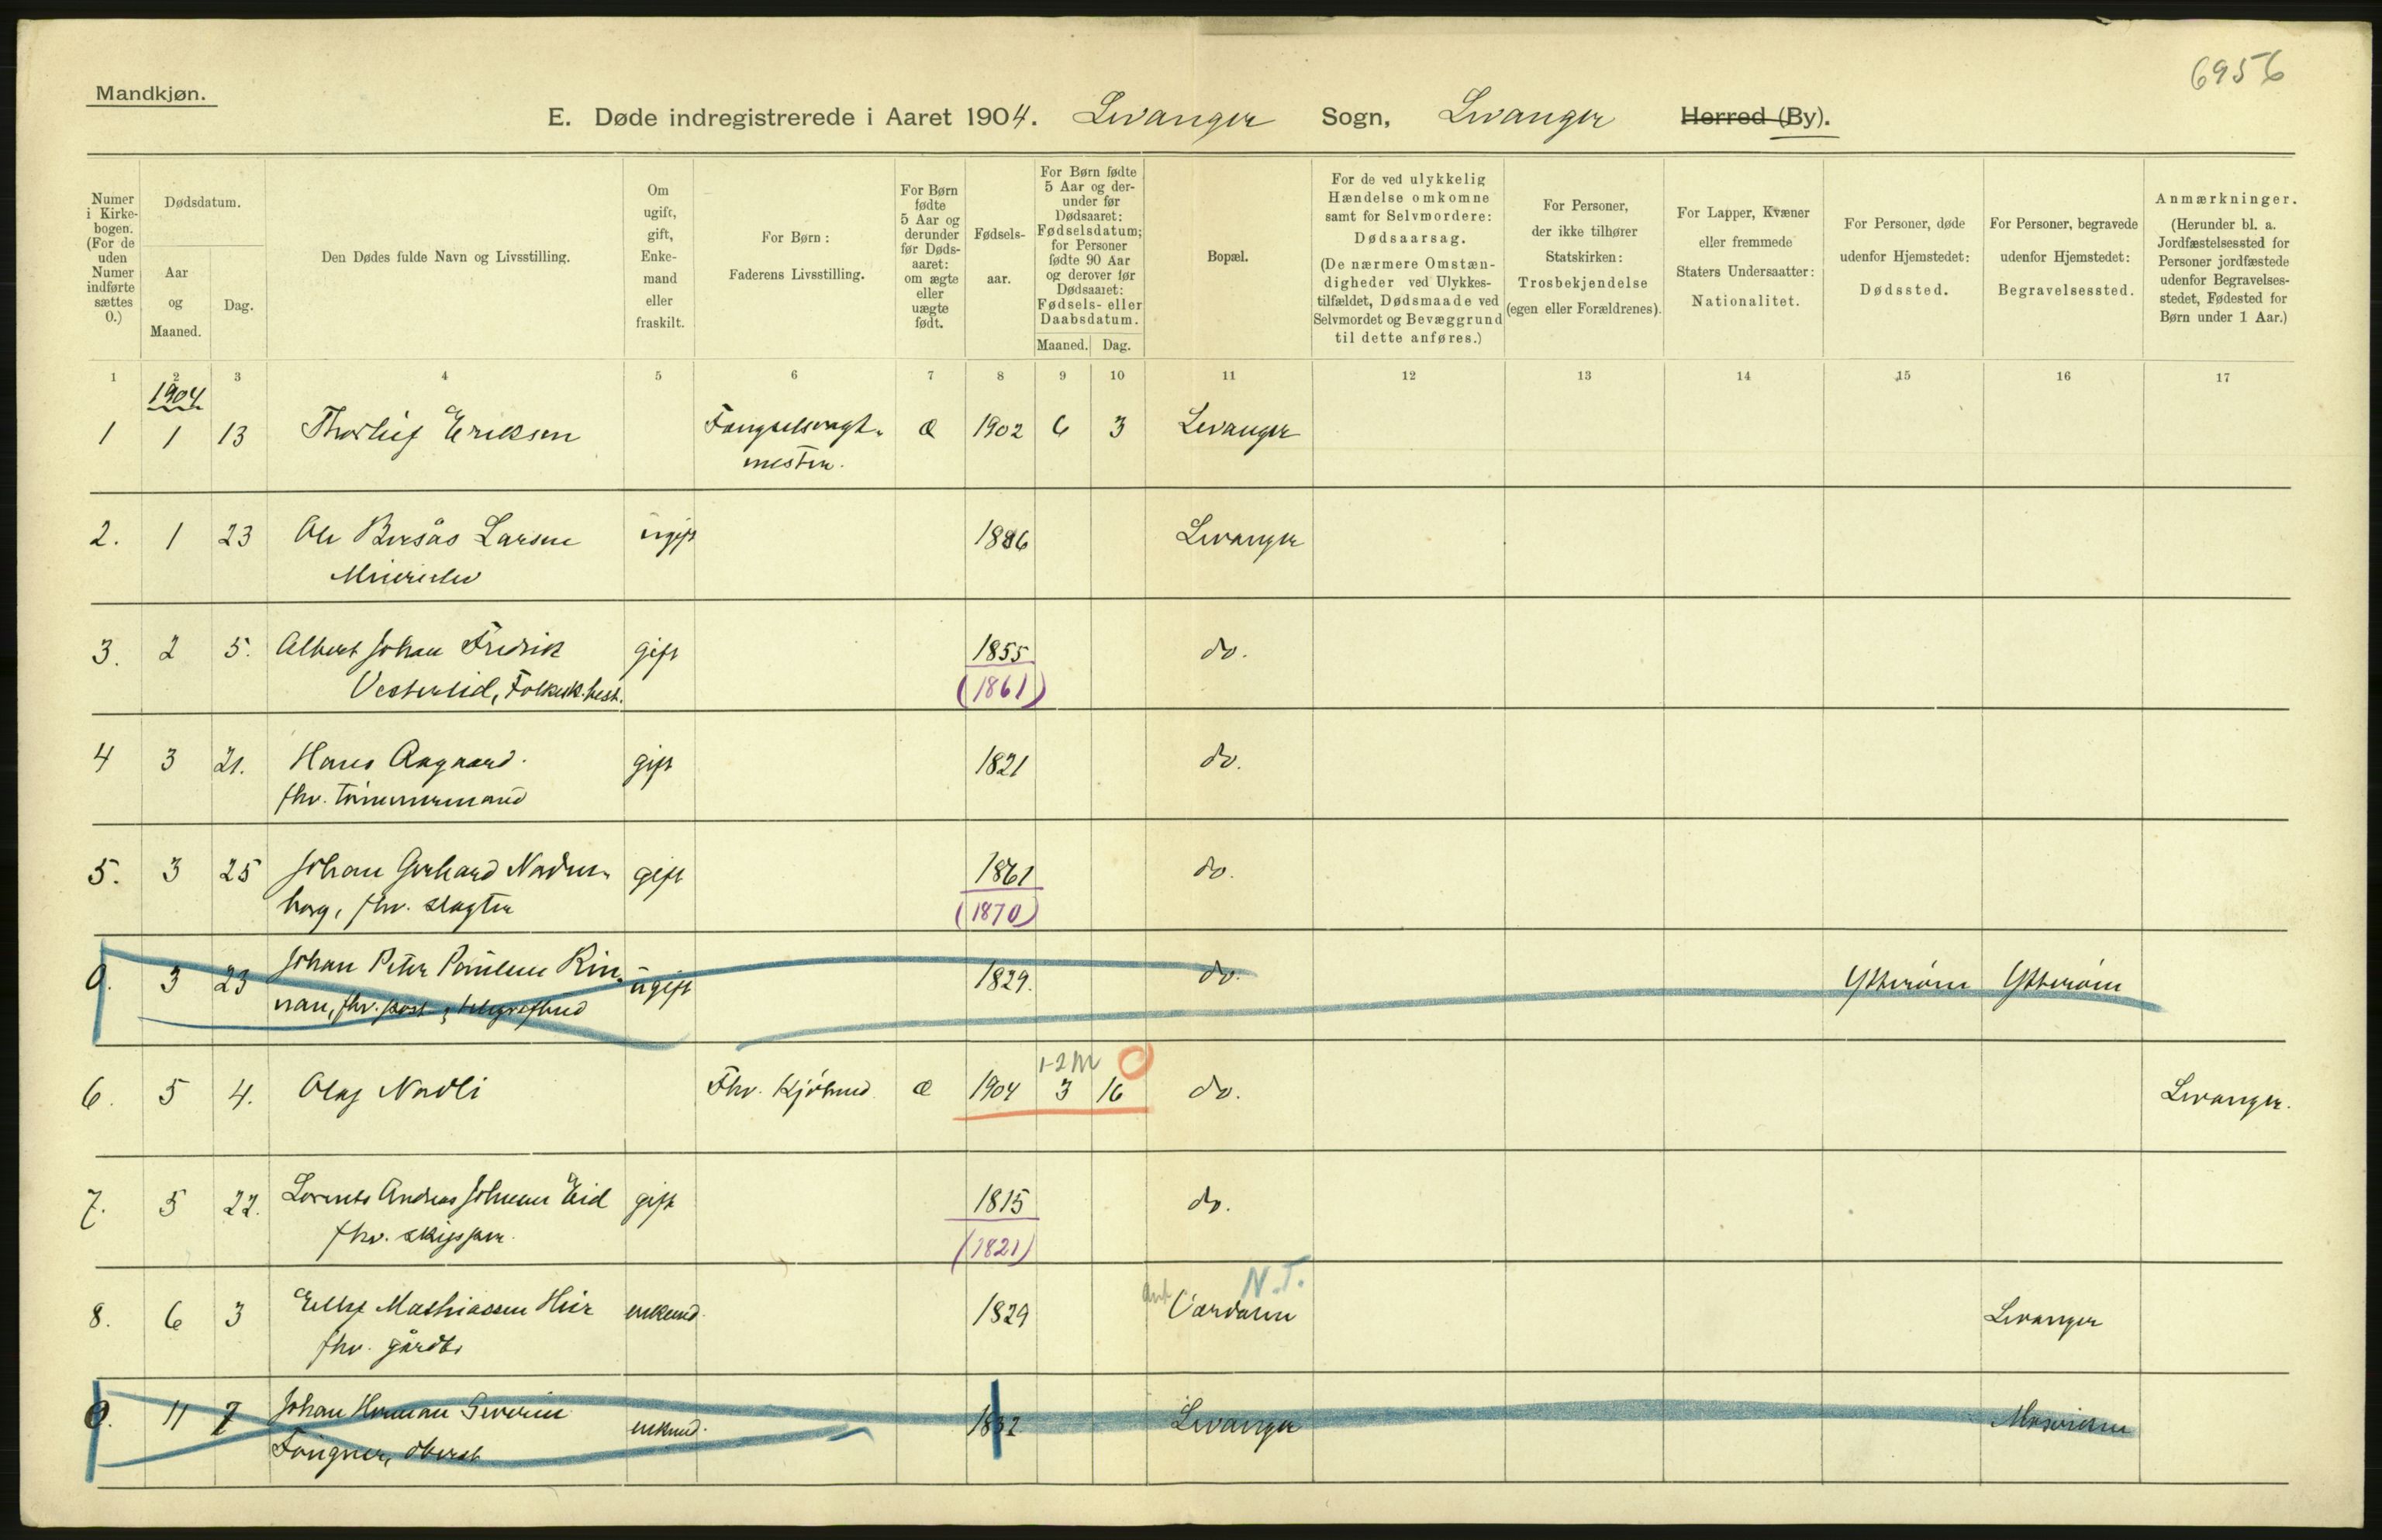 6956
Mandkjøn.
E. Døde indregistrerede i Aaret 1904. Levanger Sogn, Levanger Herred (By).
Numer i Kirke-bogen. (For de uden Numer indførte sættes 0.)
Dødsdatum.
Aar og Maaned.
Dag.
Den Dødes fulde Navn og Livsstilling.
Om ugift, gift, Enke-mand eller fraskilt.
For Børn: Faderens Livsstilling.
For Børn fødte 5 Aar og derunder før Døds-aaret: om ægte eller uægte født.
Fødsels-aar.
For Børn fødte 5 Aar og der-under før Dødsaaret: Fødselsdatum; for Personer fødte 90 Aar og derover før Dødsaaret: Fødsels- eller Daabsdatum.
Maaned. Dag.
Bopæl.
For de ved ulykkelig Hændelse omkomne samt for Selvmordere: Dødsaarsag. (De nærmere Omstæn-digheder ved Ulykkes-tilfældet, Dødsmaade ved Selvmordet og Bevæggrund til dette anføres.)
For Personer, der ikke tilhører Statskirken: Trosbekjendelse (egen eller Forældrenes).
For Lapper, Kvæner eller fremmede Staters Undersaatter: Nationalitet.
For Personer, døde udenfor Hjemstedet: Dødssted.
For Personer, begravede udenfor Hjemstedet: Begravelsessted.
Anmærkninger. (Herunder bl. a. Jordfæstelsessted for Personer jordfæstede udenfor Begravelses-stedet, Fødested for Børn under 1 Aar.)
1 2 3 4 5 6 7 8 9 10 11 12 13 14 15 16 17
1904
1 1 13 Thorleif Eriksen Fængselsvagt- Æ 1902 6 3 Levanger
mester.
2. 1 23 Ole Larsen ugift 1886 Levanger
Meierielev
3. 2 5. Albert Johan Fredrik gift 1855 do.
Vesterlid, Folkesk.best. (1861)
4 3 21. Hans Aagaard. gift 1821 do.
fhv. tømmermand
5. 3 25 Johan Gerhard Nordens gift 1861 do.
borg, fhv. slagter (1870)
0. 3 23 Johan Peter Paulsen Rin- ugift 1829. do. Ytterøen Ytterøen
nan, fhv. post- & telegrafbud
1-2 M
6. 5 4. Olaf Nordli Fhv. Kjøbmd. Æ 1904 3 16 do. Levanger.
7. 5 22. Lorents Andreas Johnsen Eid gift 1815 do.
fhv. skipper. (1821)
N.T.
8. 6 3 Mathiassen enkemd. 1829 Værdalen Levanger
fhv. gårdbr
0. 11 7 Johan Herman Severin enkmd. 1832 Levanger
oberst